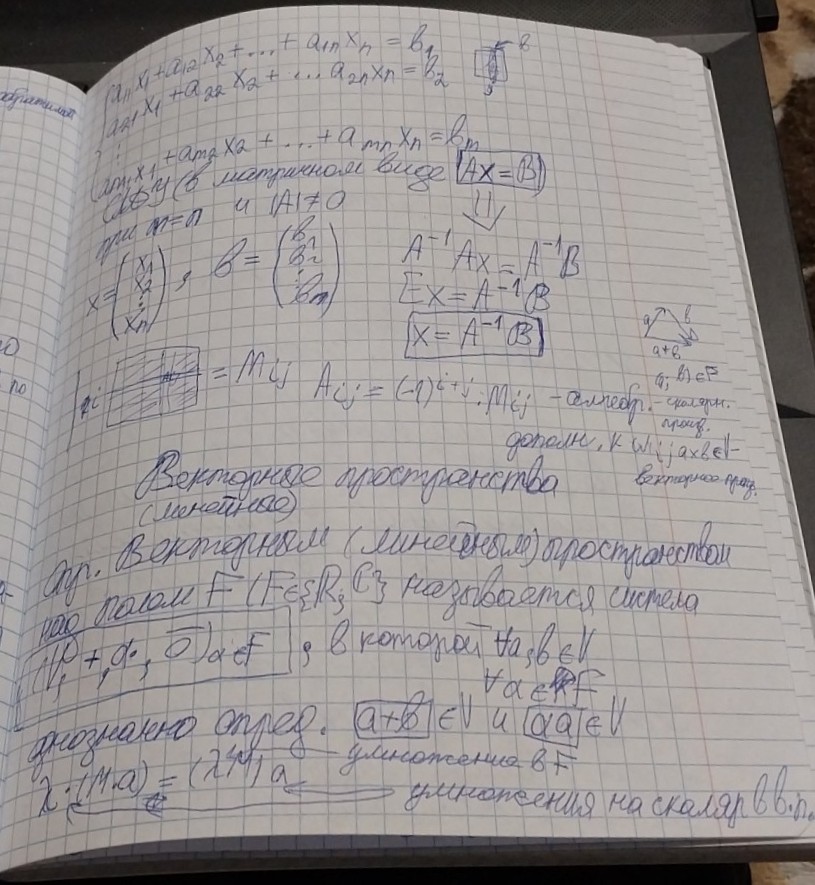 обратимая
a₁₁x₁ + a₁₂x₂ + ... + a₁ₙxₙ = b₁
a₂₁x₁ + a₂₂x₂ + ... a₂ₙxₙ = b₂
⋮
aₘ₁x₁ + aₘ₂x₂ + ... + aₘₙxₙ = bₘ
(в матричном виде AX = B)
при m=n и |A| ≠ 0
⇓
x = (x₁ x₂ ⋮ xₙ), b = (b₁ b₂ ⋮ bₘ)
A⁻¹Ax = A⁻¹B
Ex = A⁻¹B
x = A⁻¹B
a b
a+b
= Mij Aij = (-1)^{i+j} · Mij – алгебр.
дополн. к
(a, b) ∈ F
– скалярн.
произв.
a×b ∈ V –
векторное произв.
Векторные пространства
(линейные)
Опр. Векторным (линейным) пространством
над полем F (F∈{R, C} называется система
(V, +, α·, 0̄) α∈F, в которой ∀a, b ∈ V
∀α ∈ F
однозначно опред. a+b ∈ V и αa ∈ V
умножение в F
λ·(μ·a) = (λμ)a
умножения на скаляр в в.п.